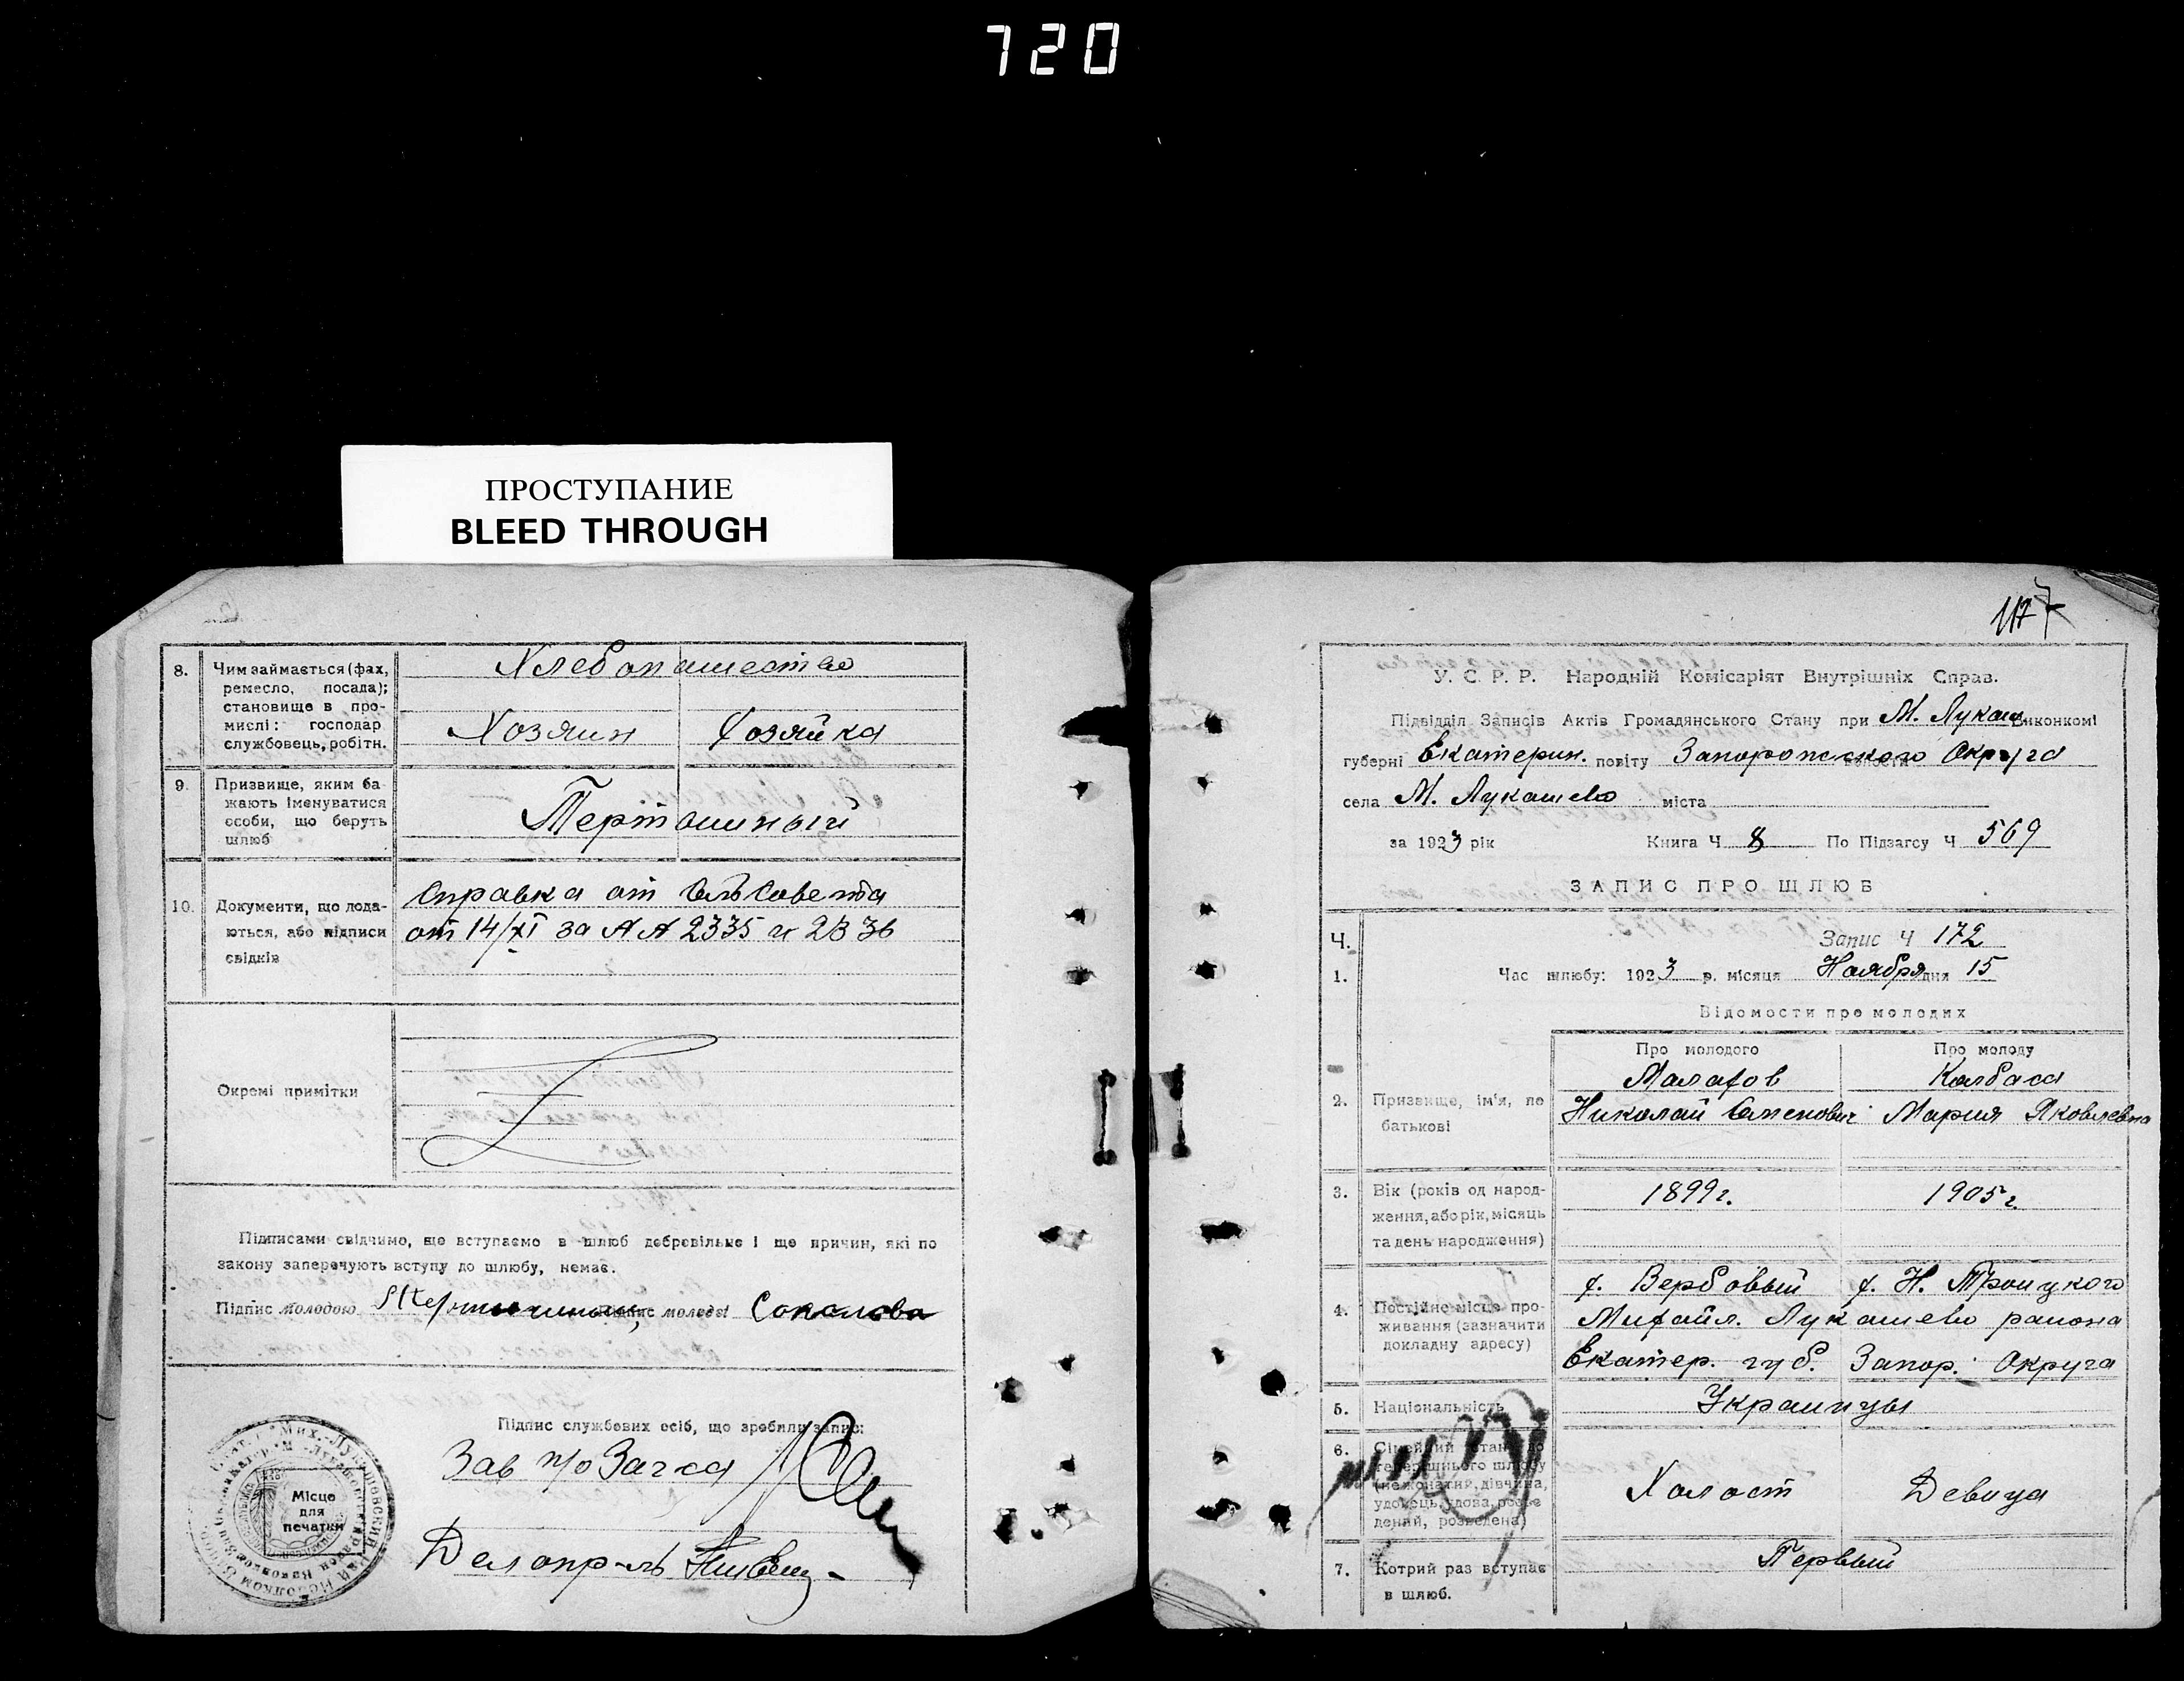 720
ПРОСТУПАНИЕ
BLEED THROUGH
8. Чим займається (фах, ремесло, посада); становище в промислі: господар службовець, робітн.
Хлебопашество
Хозяин Хозяйка
9. Призвище, яким бажають іменуватися особи, що беруть шлюб
Терташный
10. Документи, щоподаються, або підписи свідків
Справка от Сельсовета
от 14/XI за №№ 2335 и 2336
Окремі примітки
Підписами свідчимо, що вступаємо в шлюб добревільно і що причин, які по
закону заперечують вступу до шлюбу, немає.
Підпис молодого Підпис молодої Соколова
Підпис службових осіб, що зробили запис:
Зав п/о Загса
Делопр-ль
Місце
для
печатки
117
У. С. Р. Р. Народній Комісаріят Внутрішніх Справ.
Підвідділ Записів Актів Громадянського Стану при М. Лукаш. виконкомі
губерні Екатерин. повіту Запорожского Округа
села М. Лукашево міста
за 1923 рік Книга Ч 8 По Підзагсу Ч 569
ЗАПИС ПРО ШЛЮБ
Ч. Запис Ч 172
1. Час шлюбу: 1923 р. місяця Ноября дня 15
Відомости про молодих
Про молодого Про молоду
Малахов Калбаса
2. Призвище, ім'я, по батькові
Николай Семенович Мария Яковлевна
3. Вік (років од народження, або рік, місяць та день народження)
1899 г. 1905 г.
4. Постійне місце проживання (зазначити докладну адресу)
х. Вербовый х. Н. Троицкого
Михайл. Лукашево района
Екатер. губ. Запор. Округа
5. Національність
Украинцы
6. Сімейний стан до теперішнього шлюбу (нежонатий, дівчина, удовець, удова, розведений, розведена)
Холост Девица
7. Котрий раз вступає в шлюб.
Первый